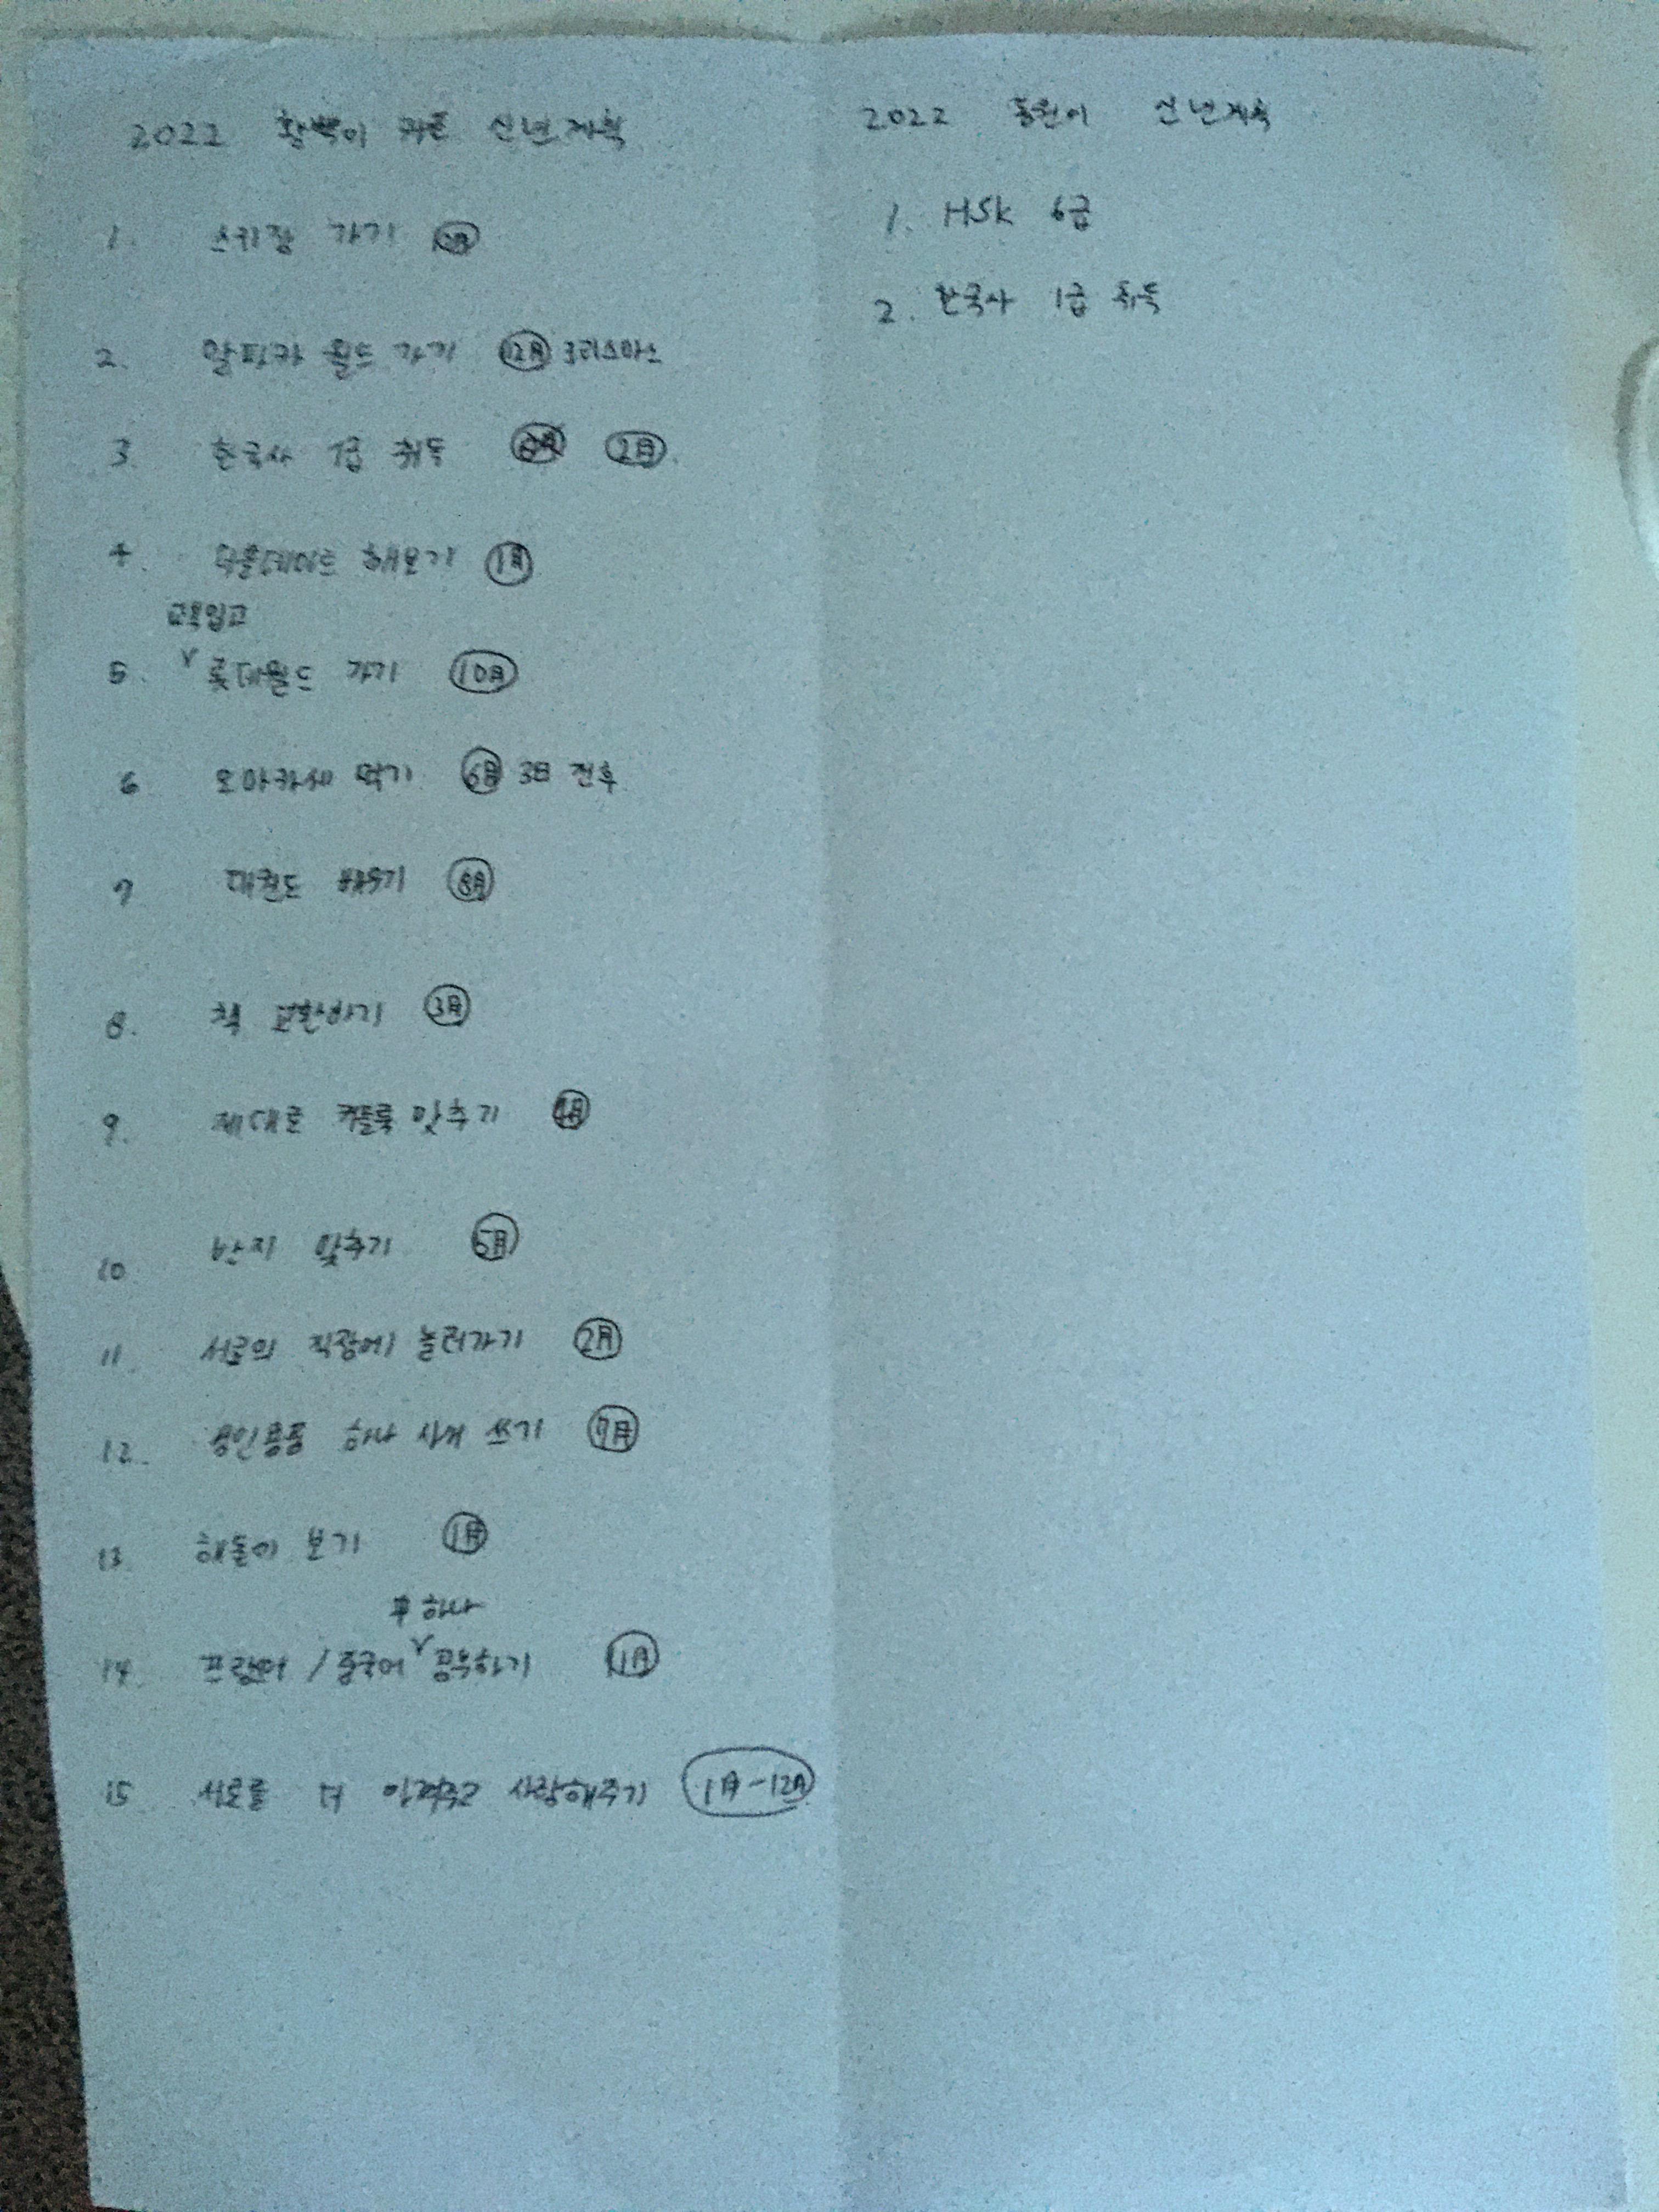 2022 커플 신년계획
1. 스키장 가기
2. 알파카 월드 가기 12月 크리스마스
3. 한국사 1급 취득 2月
4. 더블데이트 해보기 1月
교복입고
5. 롯데월드 가기 10月
6 오마카세 먹기 6月 3日 전후
7 태권도 배우기 8月
8. 책 교환하기 3月
9. 제대로 커플룩 맞추기 4月
10 반지 맞추기 5月
11 서로의 직장에 놀러가기 2月
12. 하나 쓰기 9月
13 해돋이 보기 1月
하나
14. 프랑스어 / 중국어 공부하기 11月
15 서로를 더 아껴주고 사랑해주기 1月-12月
2022 동원이 신년계획
1. HSK 6급
2. 한국사 1급 취득